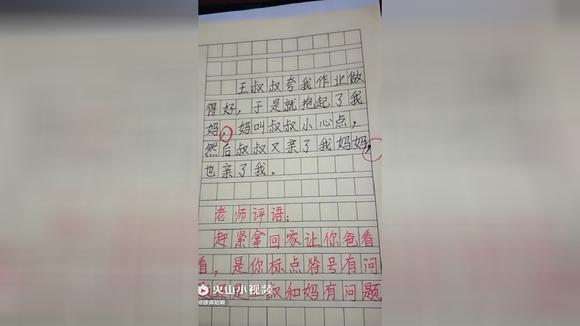 王叔叔夸我作业做
得好，于是就抱起了我
妈，妈叫叔叔小心点，
然后叔叔又亲了我妈妈，
也亲了我。
老师评语：
赶紧拿回家让你爸看
看，是你标点符号有问
叔和妈有问题
火山小视频